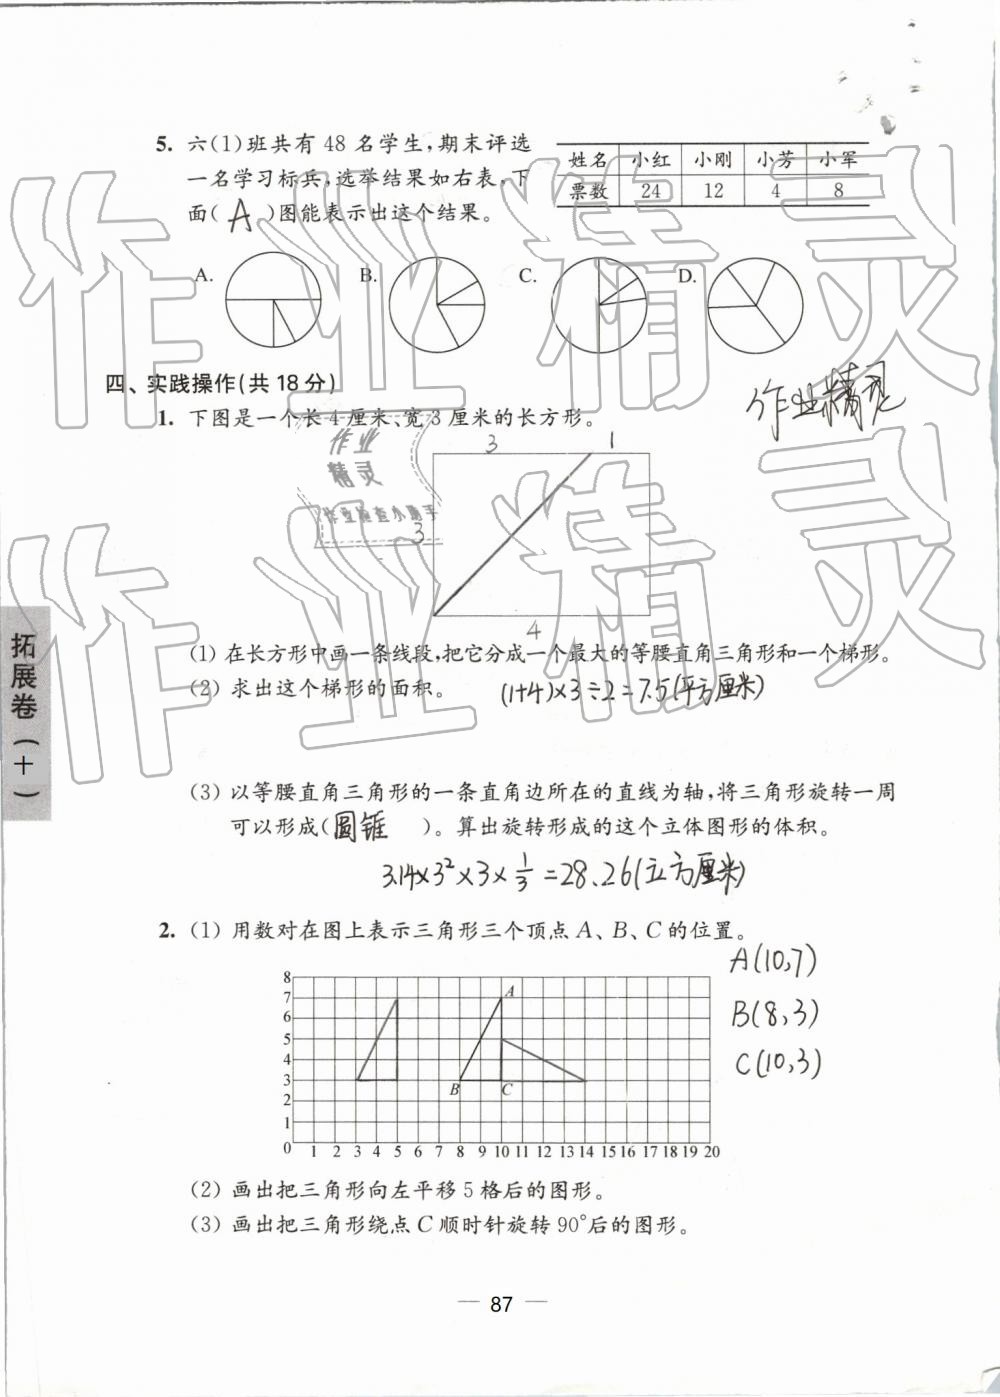 5. 六(1)班共有 48 名学生,期末评选
一名学习标兵,选举结果如右表,下
面( A )图能表示出这个结果。
姓名 小红 小刚 小芳 小军
票数 24 12 4 8
A. B. C. D.
四、实践操作(共 18 分)
作业精灵
1. 下图是一个长 4 厘米、宽 3 厘米的长方形。
3 1
作业
精灵
作业检查小助手
3
4
(1) 在长方形中画一条线段,把它分成一个最大的等腰直角三角形和一个梯形。
(2) 求出这个梯形的面积。 (1+4)×3÷2=7.5(平方厘米)
(3) 以等腰直角三角形的一条直角边所在的直线为轴,将三角形旋转一周
可以形成( 圆锥 )。算出旋转形成的这个立体图形的体积。
3.14×3²×3×1/3=28.26(立方厘米)
2. (1) 用数对在图上表示三角形三个顶点 A、B、C 的位置。
A(10,7)
B(8,3)
C(10,3)
8
7 A
6
5
4
3 B C
2
1
0 1 2 3 4 5 6 7 8 9 10 11 12 13 14 15 16 17 18 19 20
(2) 画出把三角形向左平移 5 格后的图形。
(3) 画出把三角形绕点 C 顺时针旋转 90°后的图形。
— 87 —
拓展卷(十)
作业精灵
作业精灵